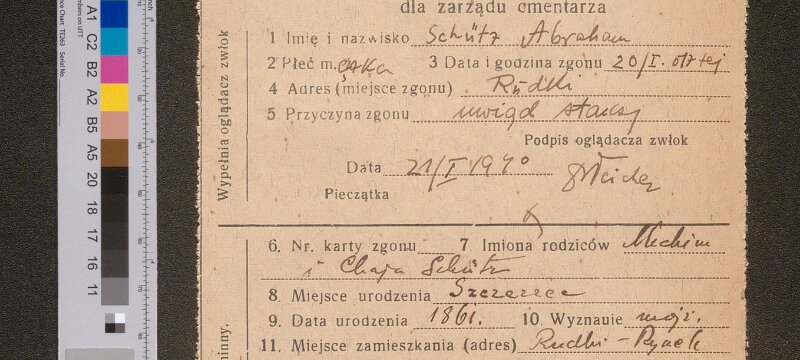 dla zarządu cmentarza
1 Imię i nazwisko Schütz Abraham
2 Płeć m. 3 Data i godzina zgonu 20/I. o 17 tej
4 Adres (miejsce zgonu) Rudki
5 Przyczyna zgonu uwiąd starczy
Podpis oglądacza zwłok
Data 21/I 1940
Pieczątka
Wypełnia oglądacz zwłok
6. Nr. karty zgonu 7 Imiona rodziców
i Chaja Schütz
8. Miejsce urodzenia Szczerzec
9. Data urodzenia 1861. 10. Wyznanie mojż.
11. Miejsce zamieszkania (adres) Rudki - Rynek
A1
C2
B2
A2
B5
A5
20
18
17
16
11